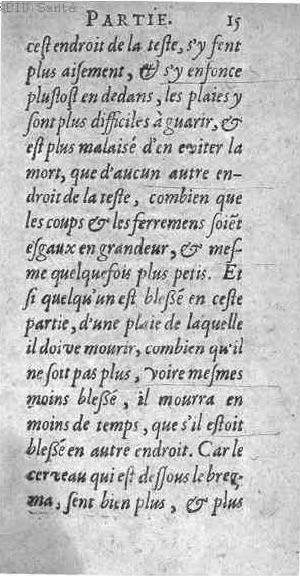 BIU Santé
PARTIE. 15
cest endroit de la teste, s'y fent
plus aisement, & s'y enfonce
plustost en dedans, les plaies y
sont plus difficiles à guarir, &
est plus malaisé d'en eviter la
mort, que d'aucun autre en-
droit de la teste, combien que
les coups & les ferremens soiēt
esgaux en grandeur, & mes-
me quelquefois plus petis. Et
si quelqu'un est blessé en ceste
partie, d'une plaie de laquelle
il doive mourir, combien qu'il
ne soit pas plus, voire mesmes
moins blessé, il mourra en
moins de temps, que s'il estoit
blessé en autre endroit. Car le
cerveau qui est dessous le breg-
ma, sent bien plus, & plus